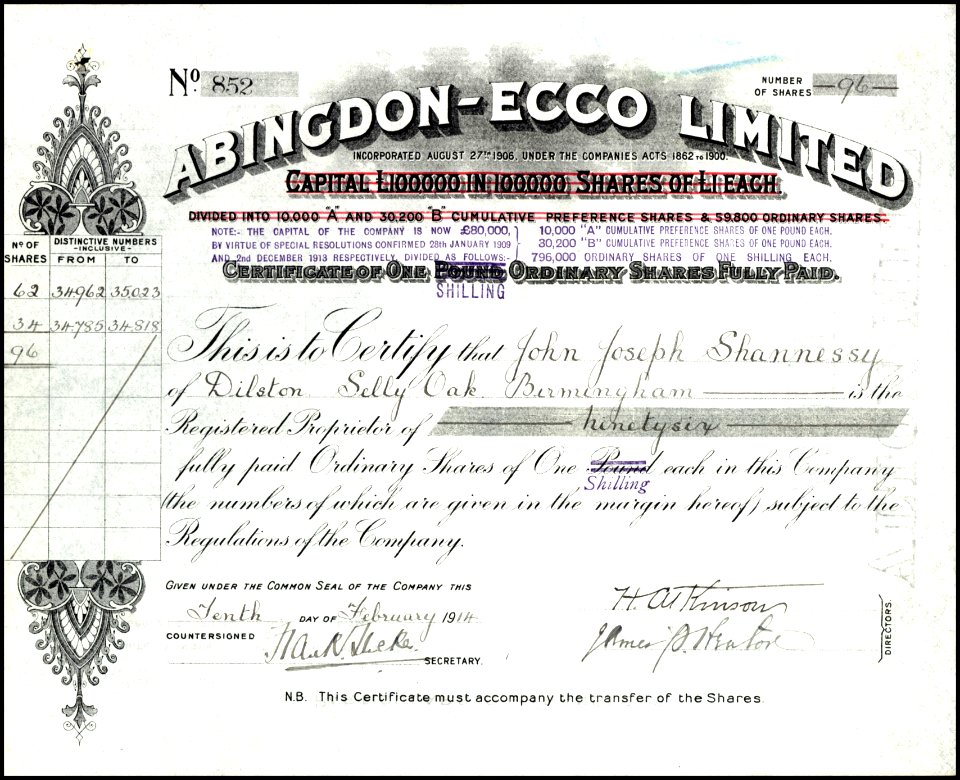 Nº 852
NUMBER OF SHARES —96—
ABINGDON-ECCO LIMITED
INCORPORATED AUGUST 27TH 1906, UNDER THE COMPANIES ACTS 1862 TO 1900.
CAPITAL £100000 IN 100000 SHARES OF £1 EACH.
DIVIDED INTO 10,000 "A" AND 30,200 "B" CUMULATIVE PREFERENCE SHARES & 59,800 ORDINARY SHARES.
NOTE:- THE CAPITAL OF THE COMPANY IS NOW £80,000,
BY VIRTUE OF SPECIAL RESOLUTIONS CONFIRMED 28th JANUARY 1909
AND 2nd DECEMBER 1913 RESPECTIVELY, DIVIDED AS FOLLOWS:-
10,000 "A" CUMULATIVE PREFERENCE SHARES OF ONE POUND EACH.
30,200 "B" CUMULATIVE PREFERENCE SHARES OF ONE POUND EACH.
796,000 ORDINARY SHARES OF ONE SHILLING EACH.
CERTIFICATE OF ONE POUND ORDINARY SHARES FULLY PAID.
SHILLING
Nº OF SHARES DISTINCTIVE NUMBERS -INCLUSIVE- FROM TO
62 34962 35023
34 34785 34818
96
This is to Certify that John Joseph Shannessy
of Dilston Selly Oak Birmingham is the
Registered Proprietor of ninetysix
fully paid Ordinary Shares of One Pound each in this Company
Shilling
(the numbers of which are given in the margin hereof) subject to the
Regulations of the Company.
GIVEN UNDER THE COMMON SEAL OF THE COMPANY THIS
Tenth DAY OF February 1914
COUNTERSIGNED
SECRETARY.
H. Atkinson
James
DIRECTORS.
N.B. This Certificate must accompany the transfer of the Shares